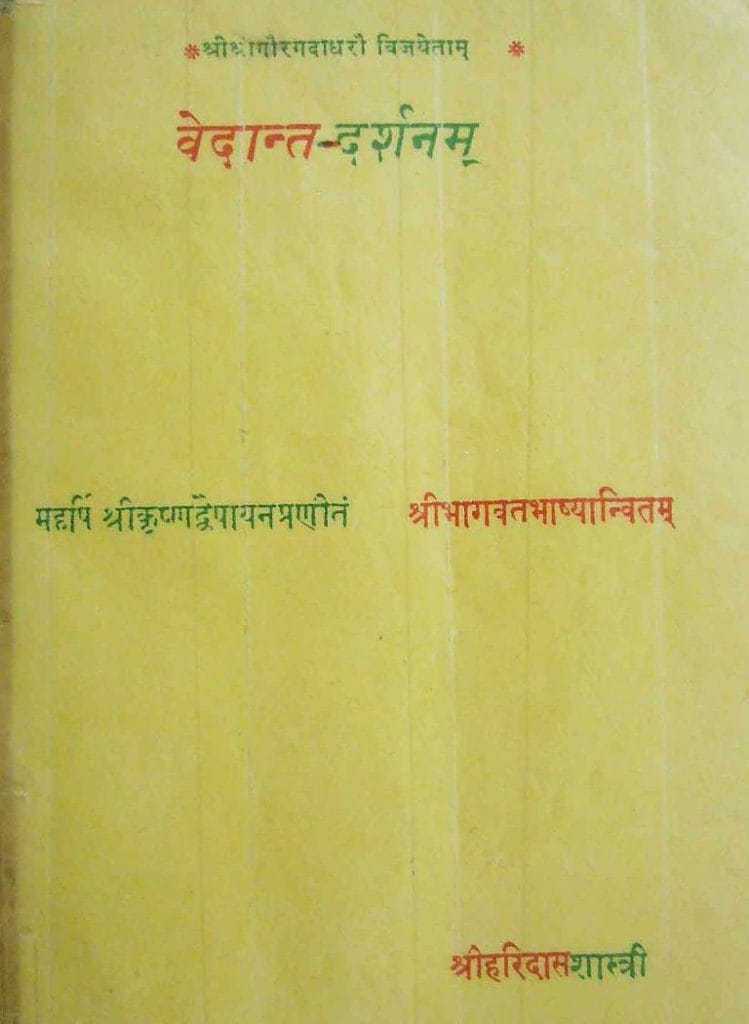 *श्रीश्रीगौरगदाधरौ विजयेताम् *
वेदान्त-दर्शनम्
महर्षि श्रीकृष्णद्वैपायनप्रणीतं श्रीभागवतभाष्यान्वितम्
श्रीहरिदासशास्त्री